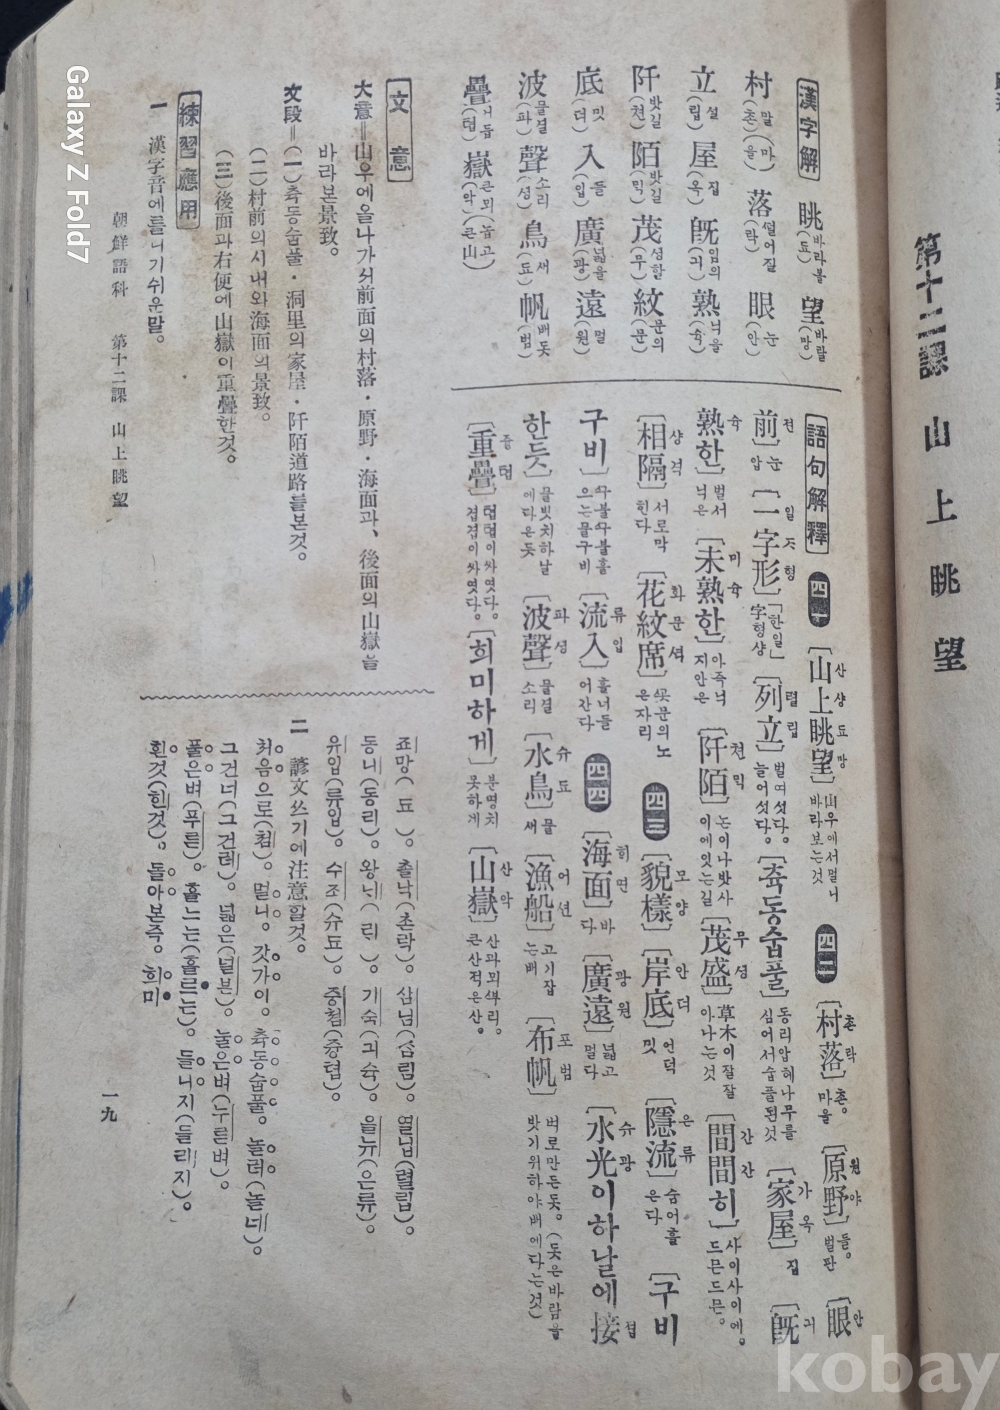 第十二課 山上眺望
漢字解
眺 바라볼 (됴) 望 바랄 (망)
村 말(마을) (촌) 落 떨어질 (락) 眼 눈 (안)
立 설 (립) 屋 집 (옥) 旣 임의 (긔) 熟 닉을 (슉)
阡 밧길 (쳔) 陌 밧길 (믹) 茂 셩할 (무) 紋 문의 (문)
底 밋 (뎌) 入 들 (입) 廣 넓을 (광) 遠 멀 (원)
波 물결 (파) 聲 소리 (셩) 鳥 새 (됴) 帆 배돗 (범)
疊 (텹) 嶽 큰뫼(놉고큰山) (악)
語句解釋
四十 [山上眺望] 산샹됴망 山우에서멀니바라보는것 四二 [村落] 촌락 촌。마을 [原野] 원야 들。벌판 [眼
前] 안젼 눈압 [一字形] 일ᄌᆞ형 「한일」字형상 [列立] 렬립 벌여섯다。늘어섯다。 [축동숩풀] 동리압헤나무를심어서숩플된것 [家屋] 가옥 집 [旣
熟한] 긔슉 벌서닉은 [未熟한] 미슉 아즉닉지안은 [阡陌] 쳔믹 논이나밧사이에잇는길 [茂盛] 무셩 草木이잘잘아나는것 [間間히] 간간 사이사이에。드믄드믄。
[相隔] 샹격 서로막힌다 [花紋席] 화문셕 ᄭᅩᆺ문의노은자리 四三 [貌樣] 모양 [岸底] 안뎌 언덕밋 [隱流] 은류 숨어흘은다 [구비
구비] 구불구불흘으는물구비 [流入] 류입 흘너들어간다 四四 [海面] ᄒᆡ면 바다 [廣遠] 광원 넓고멀다 [水光이하날에接 슈광 졉
한듯] 물빗치하날에다은듯 [波聲] 파셩 물결소리 [水鳥] 슈됴 물새 [漁船] 어션 고기잡는배 [布帆] 포범 버로만든돗。(돗은바람을밧기위하야배에다는것)
[重疊] 즁텹 텹텹이싸엿다。겹겹이싸엿다。 [희미하게] 분명치못하게 [山嶽] 산악 산과뫼ᄲᅮ리。큰산적은산。
文意
大意=山우에올나가서前面의村落·原野·海面과、後面의山嶽을
바라본景致。
文段=(一)축동숩풀·洞里의家屋·阡陌道路를본것。
(二)村前의시내와海面의景致。
(三)後面과右便에山嶽이重疊한것。
練習應用
一 漢字音에틀니기쉬운말。
죠망(됴)。 촐낙(촌락)。 삼님(삼림)。 열닙(렬립)。
동니(동리)。 왕니(리)。 기숙(긔슉)。 을뉴(은류)。
유입(류입)。 수조(슈됴)。 중첩(즁텹)。
二 諺文쓰기에注意할것。
처음으로(첨)。 멀니。 갓가이。 축동숩풀。 놀러(놀네)。
그건너(그건레)。 넓은(널븐)。 눌은벼(누른벼)。
풀은벼(푸른)。 흘느는(흘르는)。 들니지(들리지)。
흰것(힌것)。 돌아본즉。 희미
朝鮮語科 第十二課 山上眺望
一九
Galaxy Z Fold7
kobay